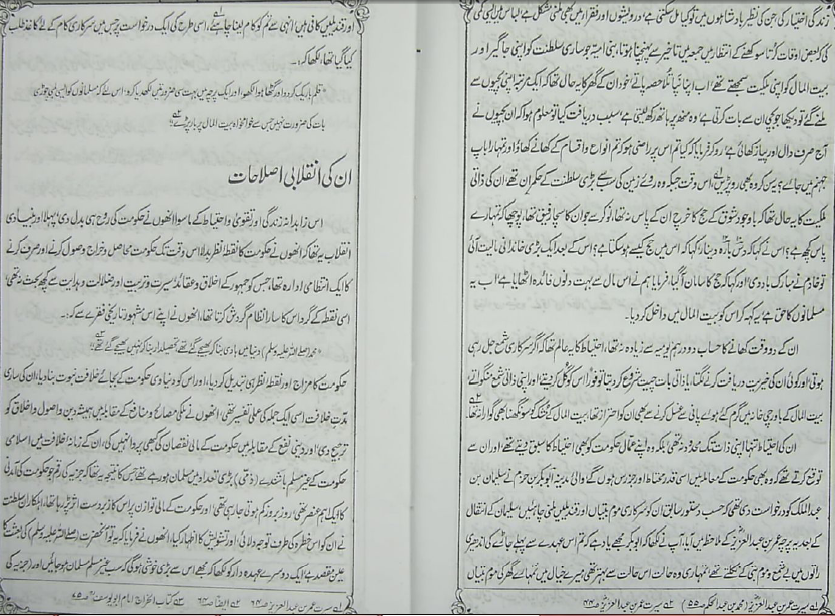 زندگی اختیار کی جس کی نظیر بادشاہوں میں تو کیا مل سکتی ہے درویشوں اور فقراء میں بھی ملنی مشکل ہے لباس میں ایسی کمی
کی کہ بعض اوقات کرتا سوکھنے کے انتظار میں جمعہ میں تاخیر سے پہنچنا ہوتا، بنی امیہ جو ساری سلطنت کو اپنی جاگیر اور
بیت المال کو اپنی ملکیت سمجھتے تھے اب اپنا نپا تلا حصہ پاتے، خود ان کے گھر کا یہ حال تھا کہ ایک مرتبہ اپنی بچیوں سے
ملنے گئے تو دیکھا جو بچی ان سے بات کرتی ہے وہ منھ پر ہاتھ رکھ لیتی ہے، سبب دریافت کیا تو معلوم ہوا کہ ان بچیوں نے
آج صرف دال اور پیاز کھائی ہے، رو کر فرمایا کہ کیا تم اس پر راضی ہو کہ تم انواع و اقسام کے کھانے کھاؤ اور تمہارا باپ
جہنم میں جائے، یہ سن کر وہ بھی رو پڑیں، اس وقت جبکہ وہ روئے زمین کی سب سے بڑی سلطنت کے حکمراں تھے ان کی ذاتی
ملکیت کا یہ حال تھا کہ باوجود شوق کے حج کا خرچ ان کے پاس نہ تھا، نوکر سے جو ان کا سچا رفیق تھا، پوچھا کہ تمہارے
پاس کچھ ہے؟ اس نے کہا کہ دس بارہ دینار، کہا کہ اس میں حج کیسے ہوسکتا ہے؟ اس کے بعد ایک بڑی خاندانی مالیت آئی
تو خادم نے مبارک باد دی اور کہا کہ حج کا سامان آگیا، فرمایا ہم نے اس مال سے بہت دنوں فائدہ اٹھایا ہے اب یہ
مسلمانوں کا حق ہے یہ کہہ کر اس کو بیت المال میں داخل کر دیا۔
ان کے دو وقت کھانے کا حساب دو درہم یومیہ سے زیادہ نہ تھا، احتیاط کا یہ عالم تھا کہ اگر سرکاری شمع جل رہی
ہوتی اور کوئی ان کی خیریت دریافت کرنے لگتا، یا ذاتی بات چیت شروع کر دیتا تو فوراً اس کو گل کر دیتے اور اپنی ذاتی شمع منگواتے
بیت المال کے باورچی خانہ میں گرم کئے ہوئے پانی سے غسل کرنے سے بھی ان کو احتراز تھا، بیت المال کے مشک کو سونگھنا بھی گوارا نہ تھا۔
ان کی احتیاط تنہا اپنی ذات تک محدود نہ تھی بلکہ وہ اپنے عمال حکومت کو بھی احتیاط کا سبق دیتے تھے اور ان سے
توقع کرتے تھے کہ وہ بھی حکومت کے معاملہ میں اسی قدر محتاط اور جزرس ہوں گے والی مدینہ ابوبکر بن حزم نے سلیمان بن
عبدالملک کو درخواست دی تھی کہ حسب دستور سابق ان کو سرکاری موم بتیاں اور قندیلیں ملنی چاہئیں، سلیمان کے انتقال
کے بعد یہ پرچہ عمر بن عبدالعزیز کے ملاحظہ میں آیا، آپ نے لکھا کہ ابوبکر مجھے یاد ہے کہ تم اس عہدے سے پہلے جاڑے کی اندھیری
راتوں میں بے شمع و موم بتی کے نکلتے تھے تمہاری وہ حالت اس حالت سے بہتر تھی، میرے خیال میں تمہارے گھر کی موم بتیاں
۱؎ سیرت عمر بن عبدالعزیز (محمد بن عبدالحکم) ص۵۵ ۲؎ سیرت عمر بن عبدالعزیز ص۴۴
اور قندیلیں کافی ہیں، انہی سے تم کو کام لینا چاہئے، اسی طرح کی ایک درخواست پر جس میں سرکاری کام کے لئے کاغذ طلب
کیا گیا تھا، لکھا کہ:۔
"قلم باریک کر دو اور گٹھا ہوا لکھو، اور ایک پرچہ میں بہت سی ضرورتیں لکھ دیا کرو، اس لئے کہ مسلمانوں کو ایسی لمبی چوڑی
بات کی ضرورت نہیں جس سے خواہ مخواہ بیت المال پر بار پڑے"
ان کی انقلابی اصلاحات
اس زاہدانہ زندگی اور تقویٰ و احتیاط کے ماسوا انھوں نے حکومت کی روح ہی بدل دی، پہلا اور بنیادی
انقلاب یہ تھا کہ انھوں نے حکومت کا نقطۂ نظر بدلا، اس وقت تک حکومت محاصل و خراج وصول کرنے اور صرف کرنے
کا ایک انتظامی ادارہ تھا، جس کو جمہور کے اخلاق و عقائد، سیرت و تربیت اور ضلالت و ہدایت سے کچھ بحث نہ تھی،
اسی نقطہ کے گرد اس کا سارا نظام گردش کرتا تھا، انھوں نے اپنے اس مشہور تاریخی فقرے سے کہ:۔
"محمد (صلے اللہ علیہ وسلم) دنیا میں ہادی بنا کر بھیجے گئے تھے تحصیلدار بنا کر نہیں بھیجے گئے تھے"
حکومت کا مزاج اور نقطۂ نظر ہی تبدیل کر دیا، اور اس کو دنیاوی حکومت کے بجائے خلافت نبوت بنا دیا، ان کی ساری
مدت خلافت اسی ایک جملہ کی عملی تفسیر تھی، انھوں نے ملکی مصالح و منافع کے مقابلہ میں ہمیشہ دین و اصول و اخلاق کو
ترجیح دی اور دینی نفع کے مقابلہ میں حکومت کے مالی نقصان کی کبھی پروا نہیں کی، ان کے زمانۂ خلافت میں اسلامی
حکومت کے غیر مسلم باشندے (ذمی) بڑی تعداد میں مسلمان ہو رہے تھے جس کا نتیجہ یہ تھا کہ جزیہ کی رقم جو حکومت کی آمدنی
کا ایک اہم عنصر تھی روز بروز کم ہوتی جا رہی تھی اور حکومت کے مالی توازن پر اس کا زبردست اثر پڑ رہا تھا، اہلکاران سلطنت
نے ان کو اس خطرہ کی طرف توجہ دلائی اور تشویش کا اظہار کیا، انھوں نے فرمایا کہ یہ تو آنحضرت (صلے اللہ علیہ وسلم) کی بعثت کا
عین مقصد ہے، ایک دوسرے عہدہ دار کو لکھا کہ مجھے اس سے بڑی خوشی ہوگی کہ سب غیر مسلم مسلمان ہو جائیں اور (جزیہ کی
۱؎ سیرت عمر بن عبدالعزیز ص۶۴ ۲؎ ایضاً ص۶۴ ۳؎ کتاب الخراج امام ابو یوسف ص۷۵